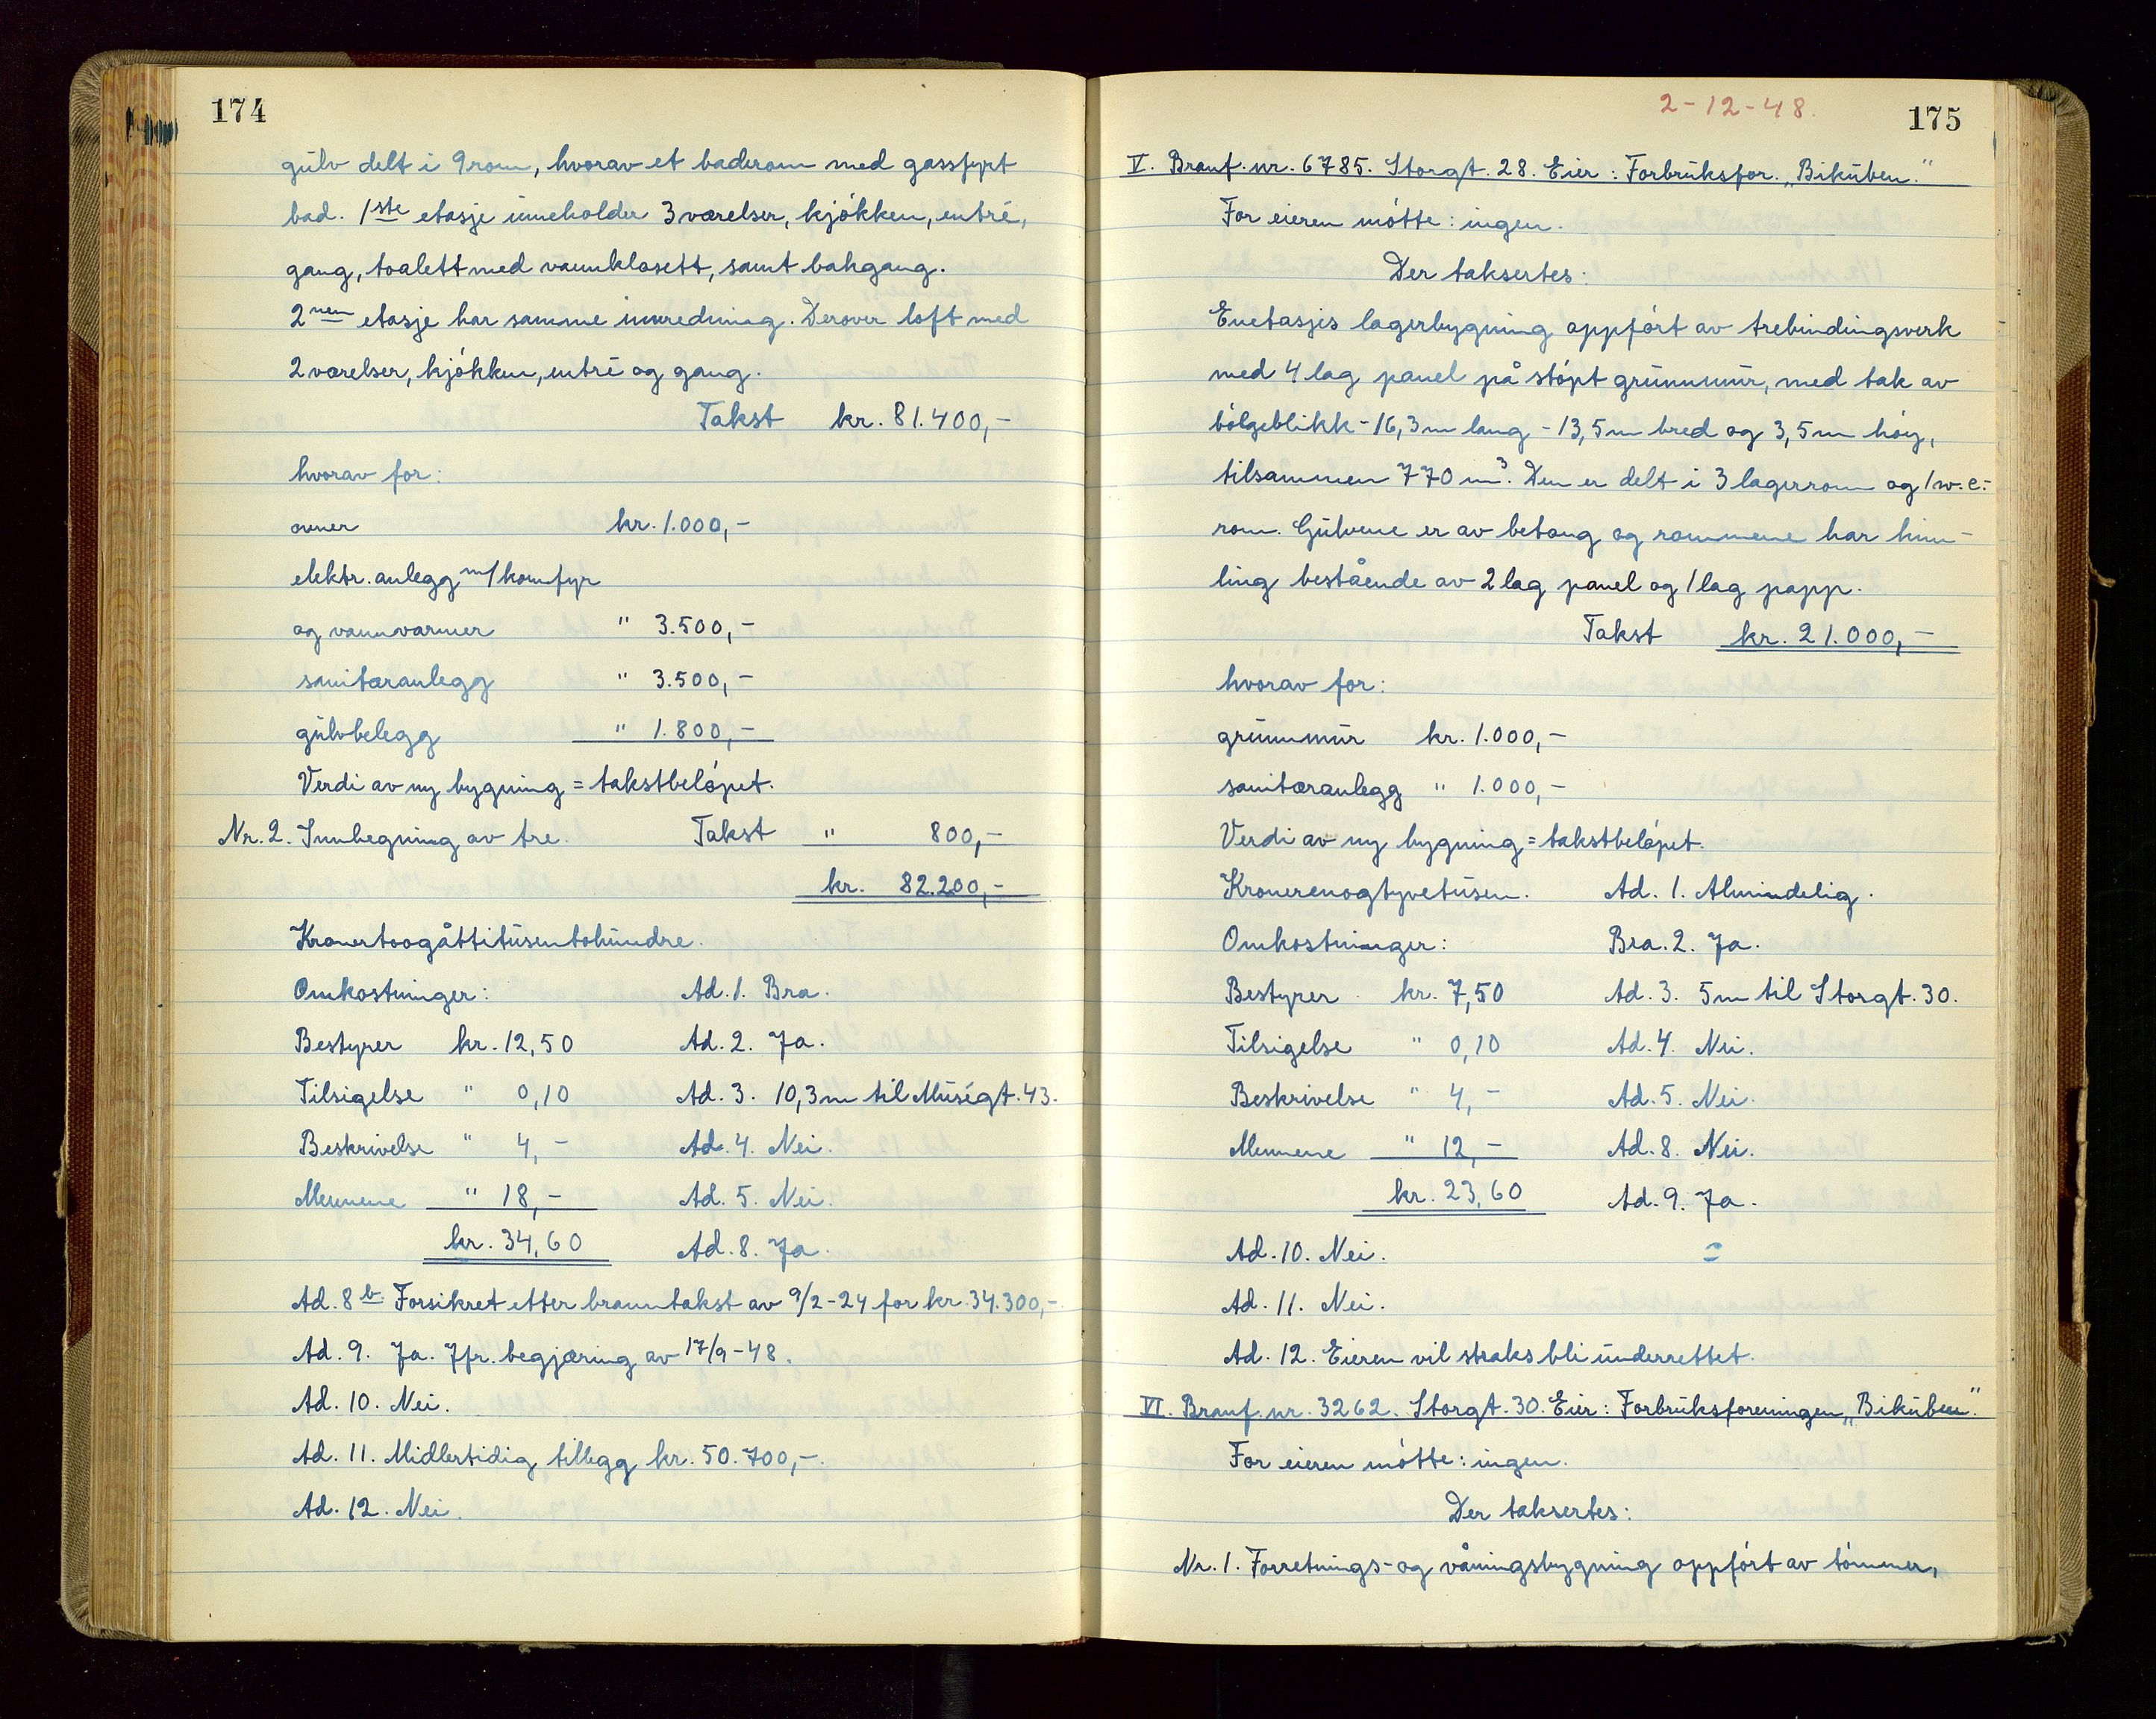 174
gulv delt i 9 rom, hvorav et baderom med gassfyrt
bad. 1ste etasje inneholder 3 værelser, kjøkken, entré,
gang, toalett med vannklosett, samt bakgang.
2nen etasje har samme innredning. Derover loft med
2 værelser, kjøkken, entré og gang.
Takst kr. 81.400,-
hvorav for:
ovner kr. 1.000,-
elektr. anlegg m/komfyr
og vannvarmer " 3.500,-
sanitæranlegg " 3.500,-
gulvbelegg " 1.800,-
Verdi av ny bygning = takstbeløpet.
Nr. 2. Innhegning av tre. Takst " 800,-
kr. 82.200,-
Kronertoogåttitusentohundre.
Omkostninger: Ad. 1. Bra.
Bestyrer kr. 12,50 Ad. 2. Ja.
Tilsigelse " 0,10 Ad. 3. 10,3 m til Museigt. 43.
Beskrivelse " 4,- Ad. 4. Nei.
Mennene " 18,- Ad. 5. Nei.
kr. 34,60 Ad. 8. Ja.
Ad. 8 b. Forsikret etter branntakst av 9/2-24 for kr. 34.300,-
Ad. 9. Ja. Jfr. begjæring av 17/9-48.
Ad. 10. Nei.
Ad. 11. Midlertidig tillegg kr. 50.700,-.
Ad. 12. Nei.
2-12-48.
175
V. Branf. nr. 6785. Storgt. 28. Eier: Forbruksfor. „Bikuben."
For eieren møtte: ingen.
Der taksertes:
Enetasjes lagerbygning oppført av trebindingsverk
med 4 lag panel på støpt grunnmur, med tak av
bølgeblikk - 16,3 m lang - 13,5 m bred og 3,5 m høy,
tilsammen 770 m³. Den er delt i 3 lagerrom og 1 w.c.-
rom. Gulvene er av betong og rommene har him-
ling bestående av 2 lag panel og 1 lag papp.
Takst kr. 21.000,-
hvorav for:
grunnmur kr. 1.000,-
sanitæranlegg " 1.000,-
Verdi av ny bygning = takstbeløpet.
Kronerenogtyvetusen. Ad. 1. Almindelig.
Omkostninger: Bra. 2. Ja.
Bestyrer kr. 7,50 Ad. 3. 5 m til Storgt. 30.
Tilsigelse " 0,10 Ad. 4. Nei.
Beskrivelse " 4,- Ad. 5. Nei.
Mennene " 12,- Ad. 8. Nei.
kr. 23,60 Ad. 9. Ja.
Ad. 10. Nei.
Ad. 11. Nei.
Ad. 12. Eieren vil straks bli underrettet.
VI. Branf. nr. 3262. Storgt. 30. Eier: Forbruksforeningen „Bikuben."
For eieren møtte: ingen.
Der taksertes:
Nr. 1. Forretnings- og våningsbygning oppført av tømmer,